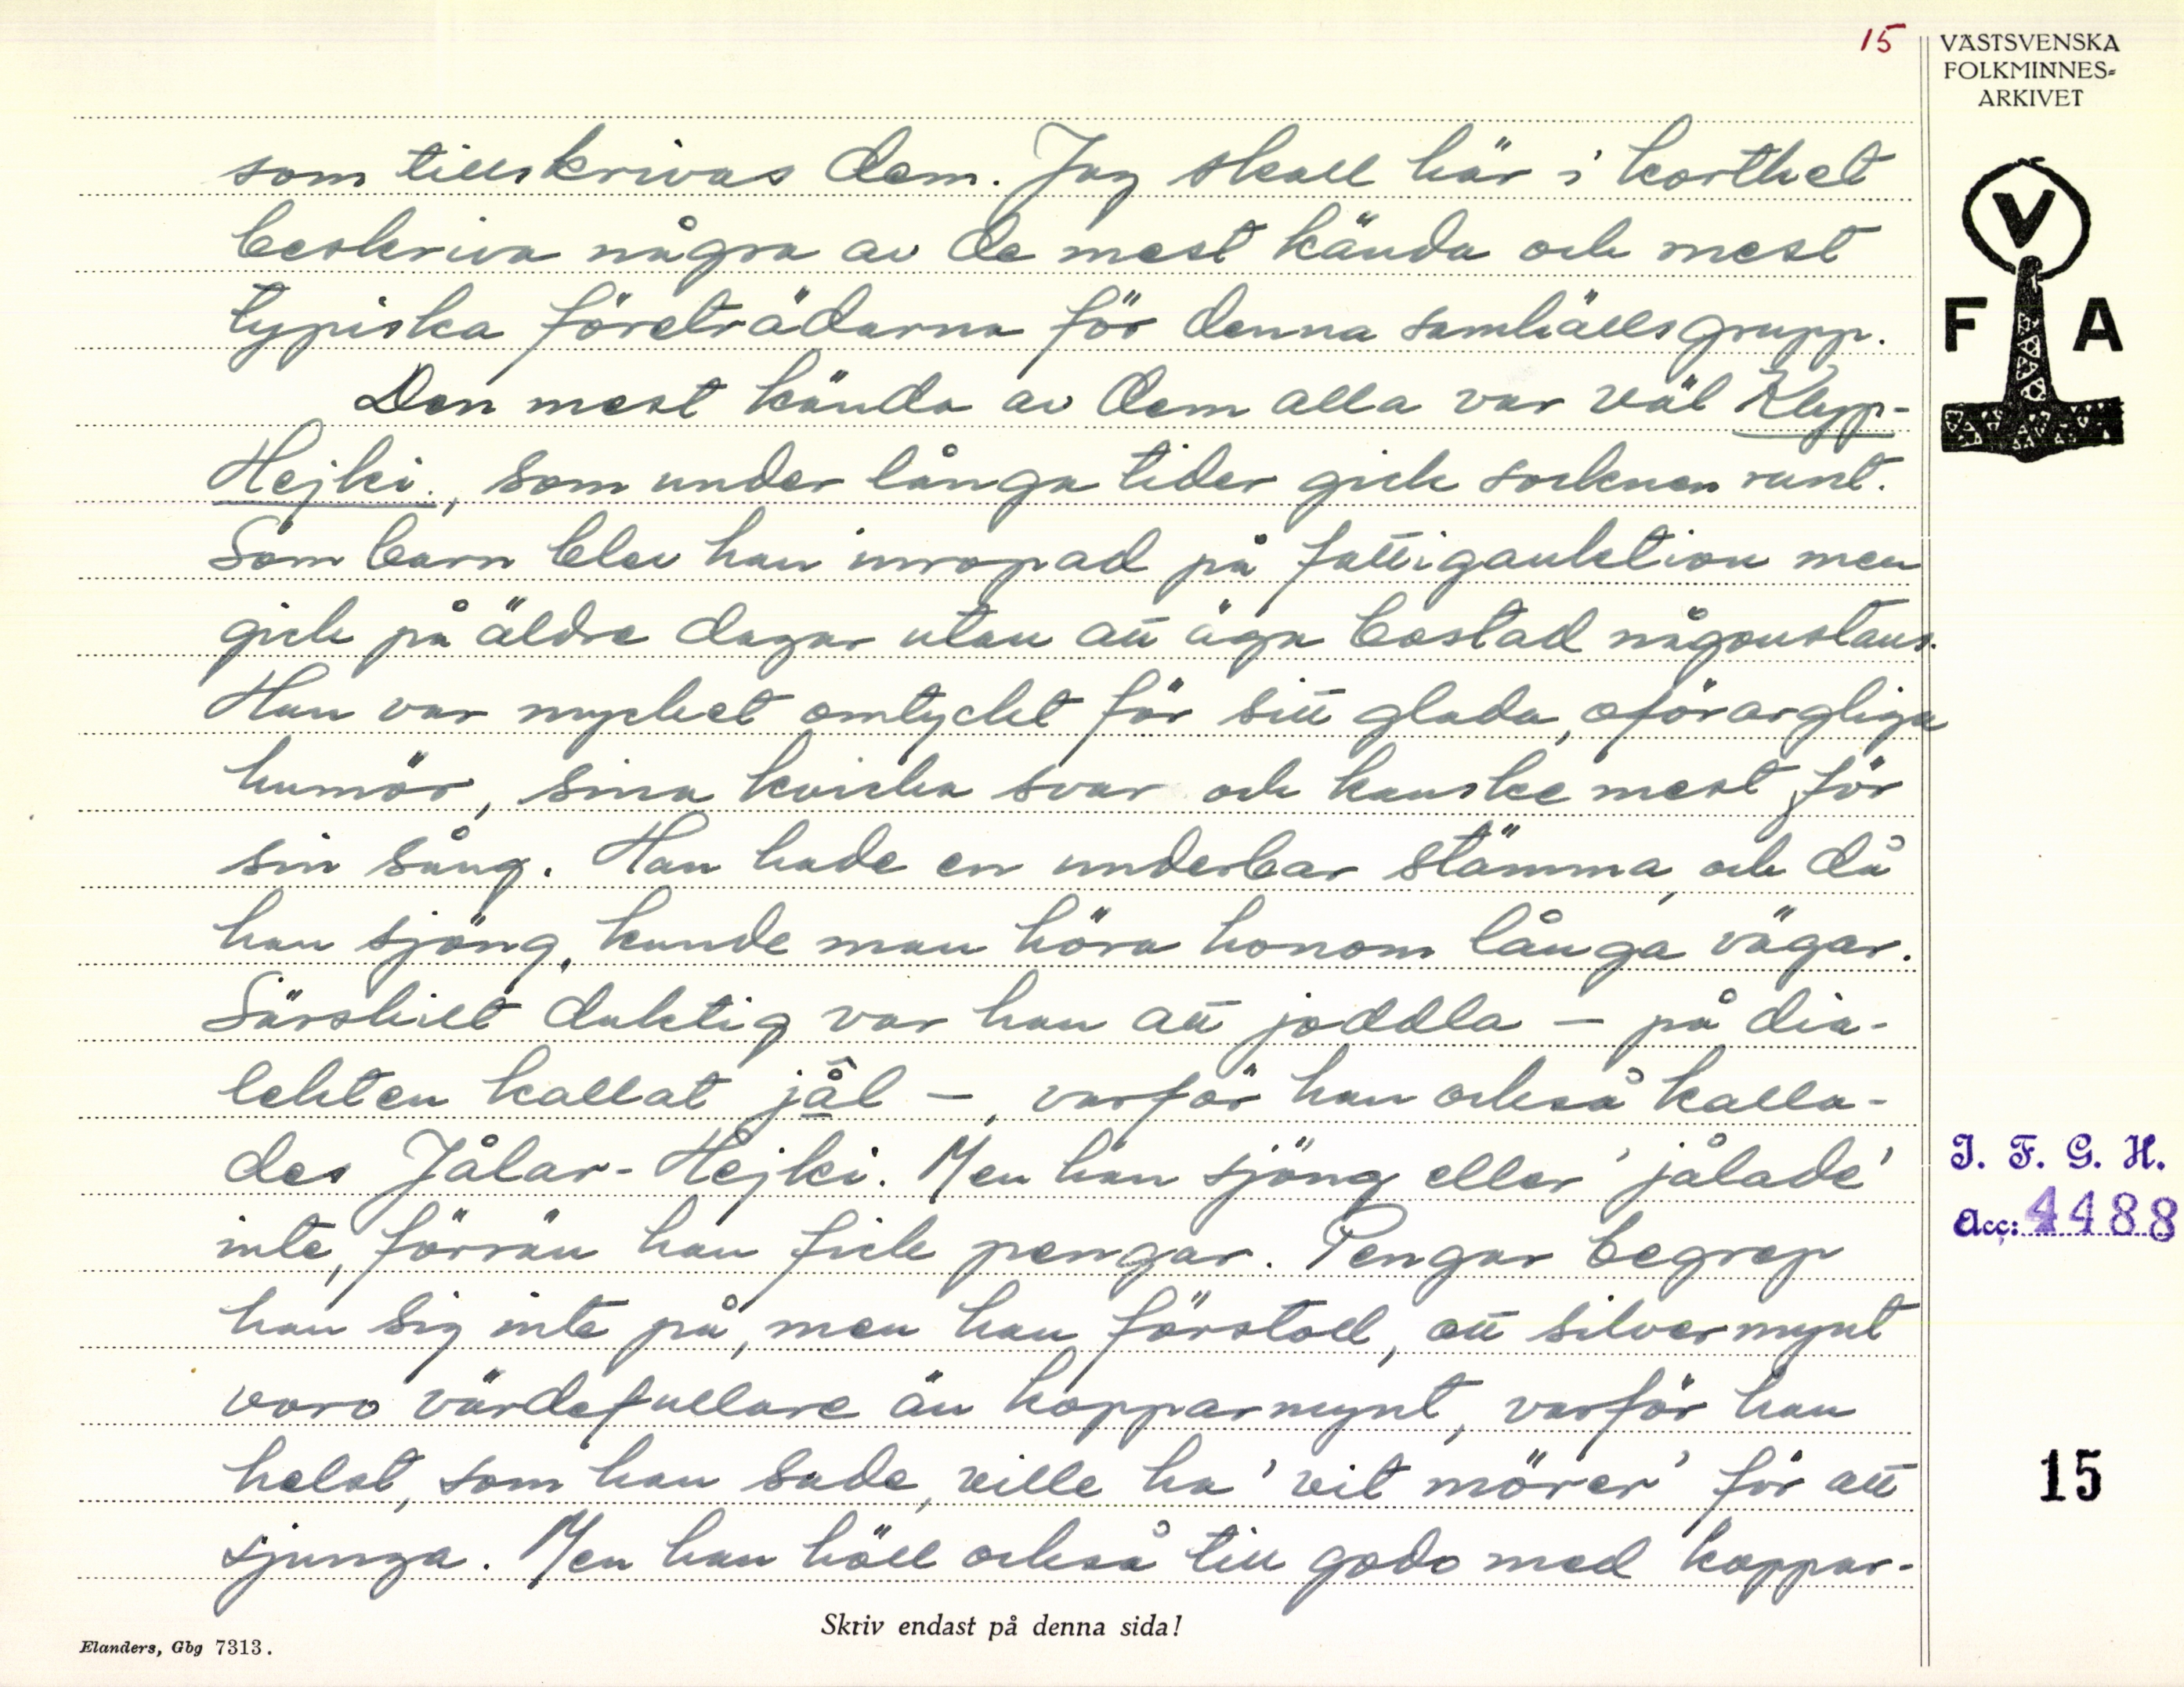 15
VÄSTSVENSKA
FOLKMINNES-
ARKIVET
V
F A
som tillskrivas dem. Jag skall här i korthet
beskriva några av de mest kända och mest
typiska företrädarna för denna samhällsgrupp.
Den mest kända av dem alla var väl Klypp-
Hejki., som under långa tider gick socknen runt.
Som barn blev han inropad på fattigauktion men
gick på äldre dagar utan att äga bostad någonstans.
Han var mycket omtyckt för sitt glada, oförargliga
humör, sina kvicka svar och kanske mest för
sin sång. Han hade en underbar stämma, och då
han sjöng, kunde man höra honom långa vägar.
Särskilt duktig var han att joddla – på dia-
lekten kallat jål –, varför han också kalla-
des Jålar-Hejki. Men han sjöng eller 'jålade'
inte, förrän han fick pengar. Pengar begrep
han sig inte på, men han förstod, att silvermynt
voro värdefullare än kopparmynt, varför han
helst, som han sade, ville ha 'vit mörer' för att
sjunga. Men han höll också till godo med koppar-
I. F. G. H.
Acc: 4488
15
Skriv endast på denna sida!
Elanders, Gbg 7313.